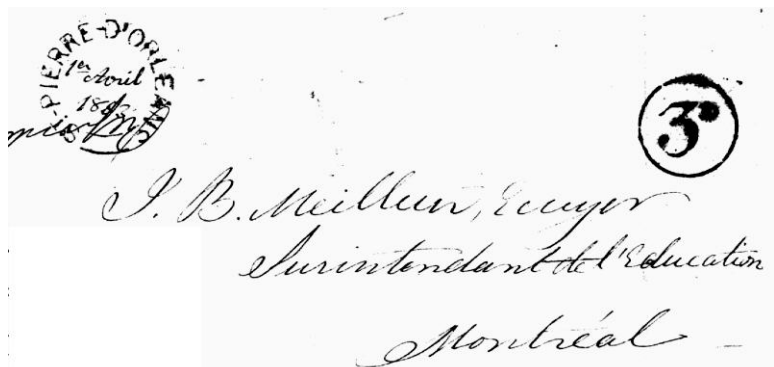 St-PIERRE-D'ORLEANS
1er Avril
3D
J. B. Meilleur, Ecuyer
Surintendant de l'Education
Montréal